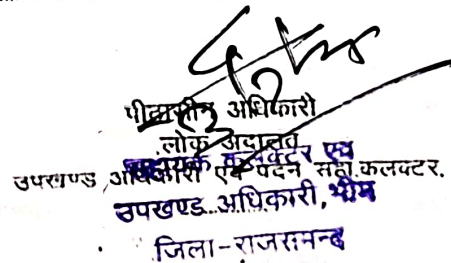 पीठासीन अधिकारी
लोक अदालत
सहायक कलक्टर एवं
उपखण्ड अधिकारी एवं पदेन सहा.कलक्टर.
उपखण्ड अधिकारी, भीम
जिला-राजसमन्द